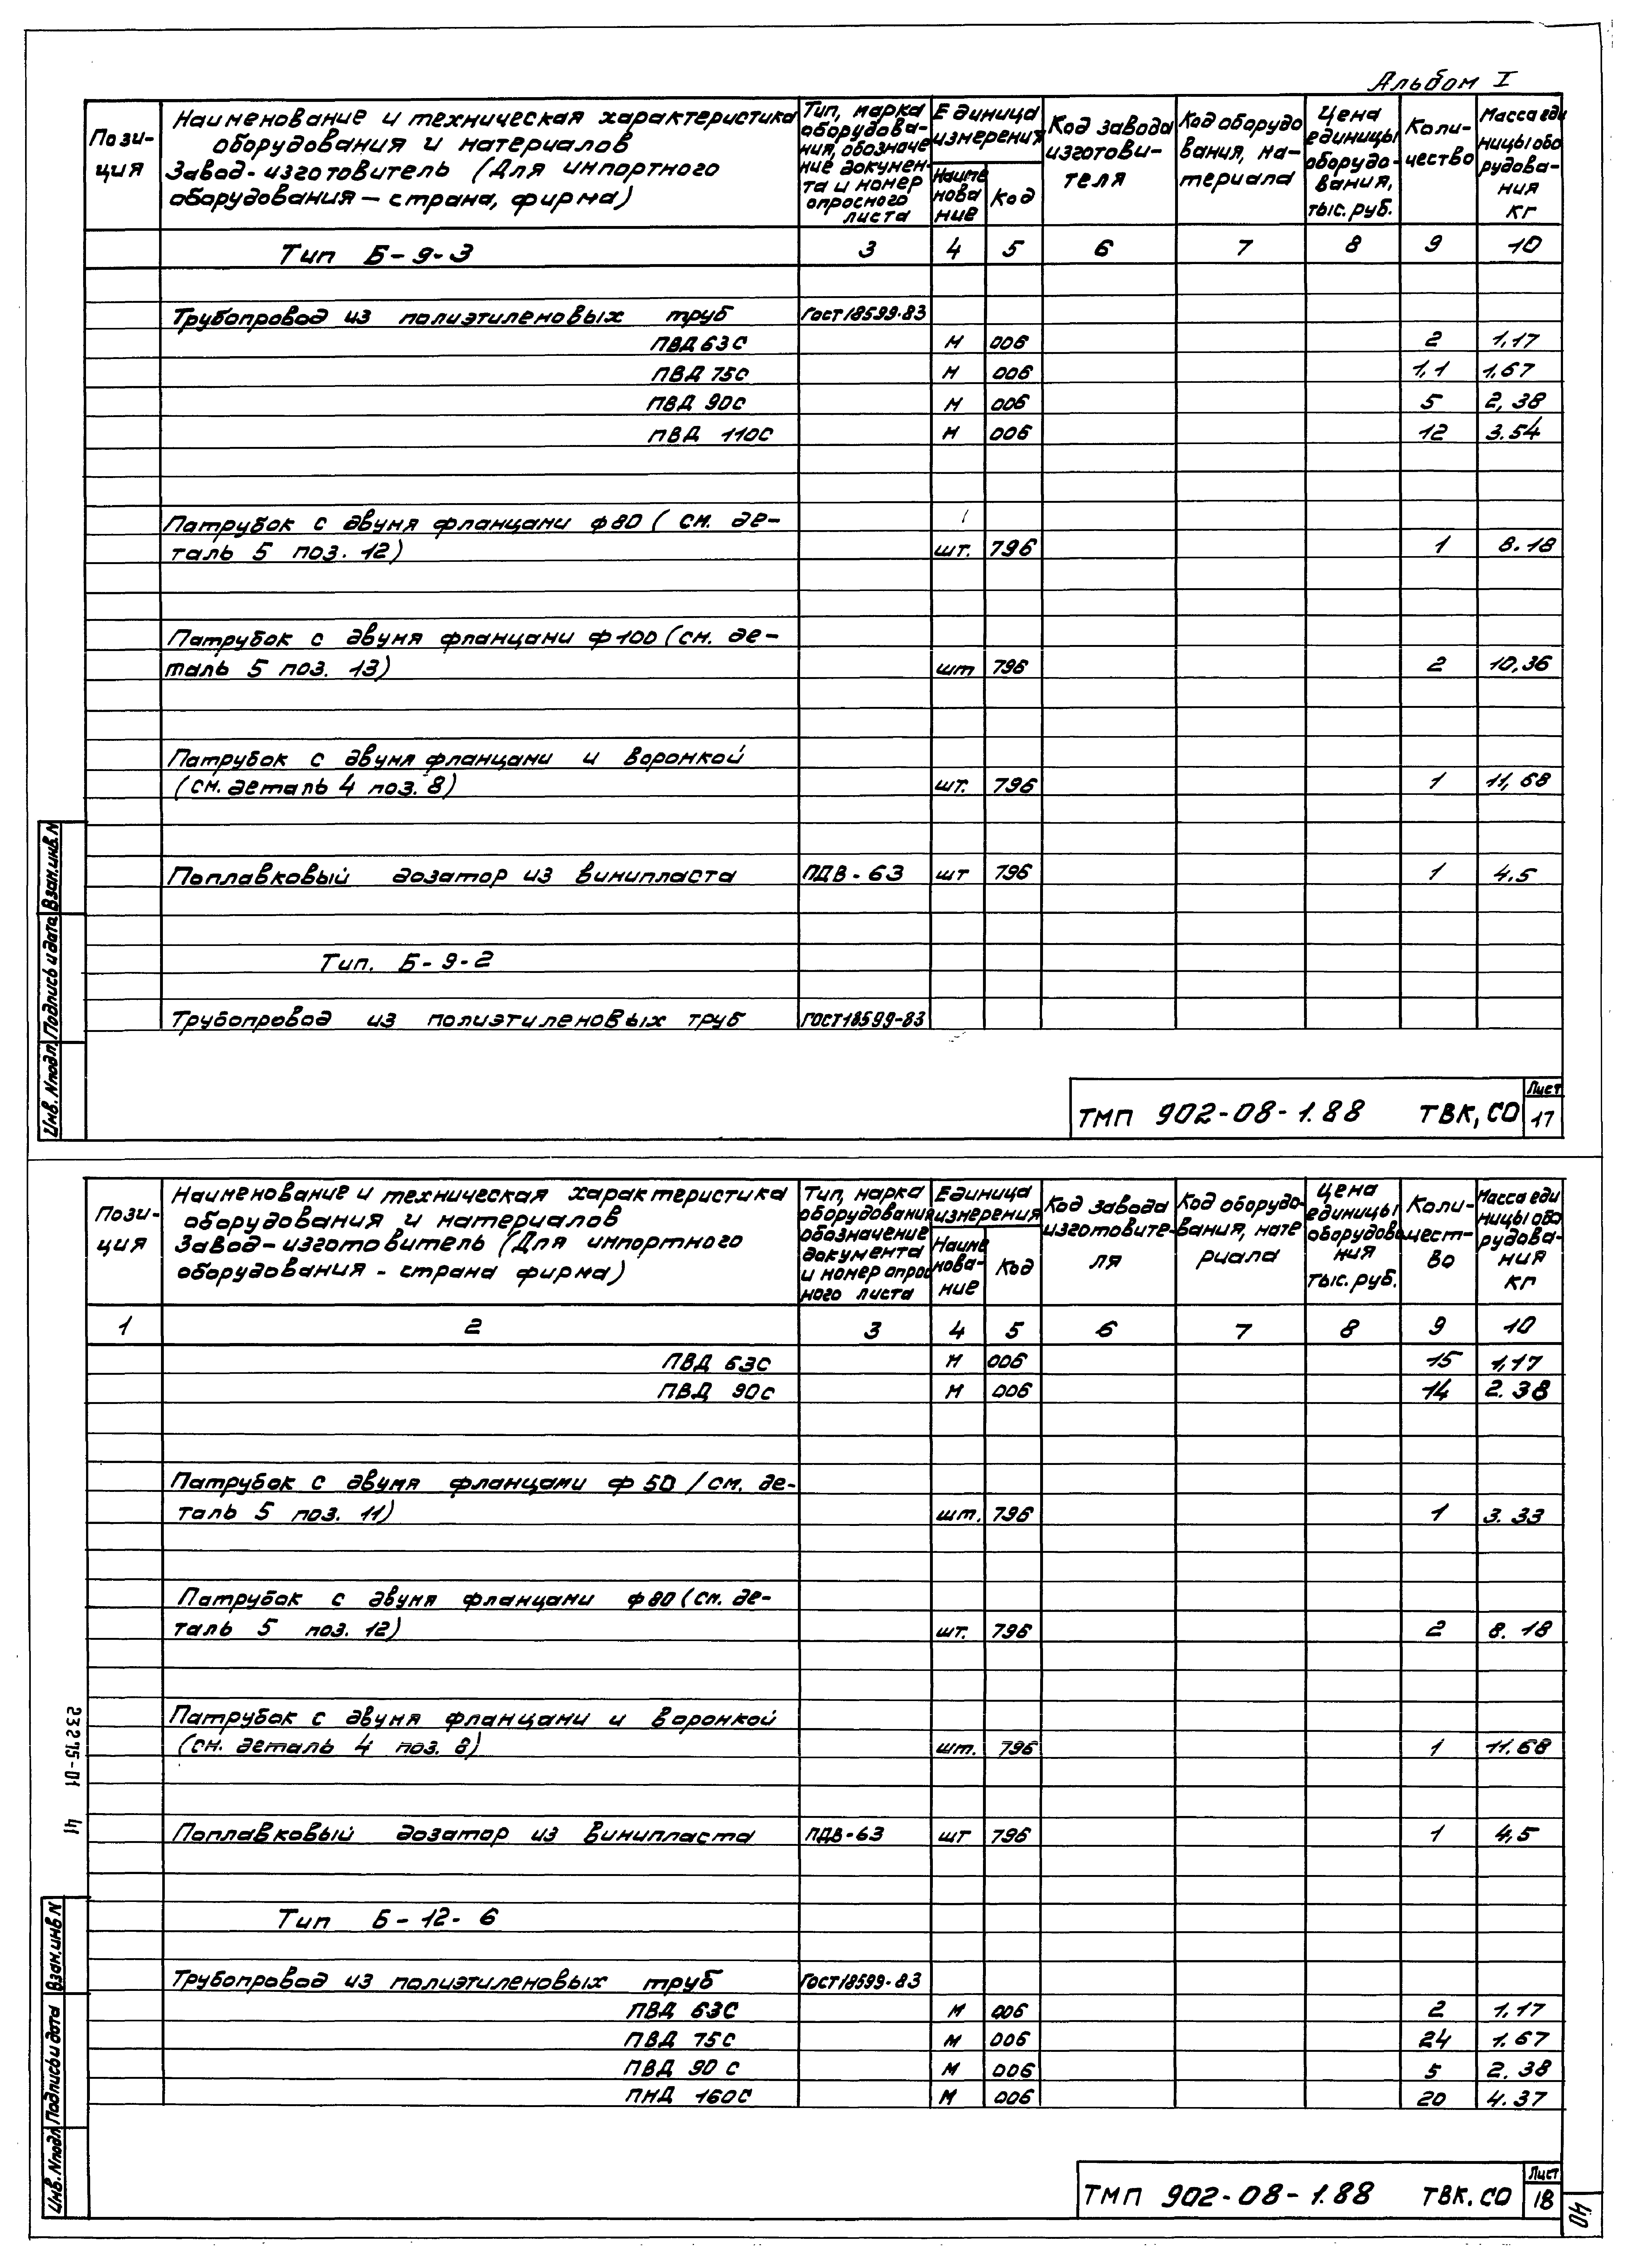 Альбом I
Пози-
ция
Наименование и техническая характеристика
оборудования и материалов
Завод-изготовитель (Для импортного
оборудования - страна, фирма)
Тип, марка
оборудова-
ния, обозначе
ние докумен-
та и номер
опросного
листа
Единица
измерения
Наиме
нова
ние
Код
Код завода
изготови-
теля
Код оборудо
вания, ма-
териала
Цена
единицы
оборудо-
вания,
тыс. руб.
Коли-
чество
Масса еди
ницы обо
рудова-
ния
кг
Тип Б-9-3 3 4 5 6 7 8 9 10
Трубопровод из полиэтиленовых труб ГОСТ 18599-83
ПВД 63С м 006 2 1,17
ПВД 75С м 006 1,1 1,67
ПВД 90С м 006 5 2,38
ПВД 110С м 006 12 3.54
Патрубок с двумя фланцами ф80 (см. де-
таль 5 поз. 12) шт. 796 1 8.18
Патрубок с двумя фланцами ф100 (см. де-
таль 5 поз. 13) шт 796 2 10,36
Патрубок с двумя фланцами и воронкой
(см. деталь 4 поз. 8) шт. 796 1 11,68
Поплавковый дозатор из винипласта ПДВ-63 шт 796 1 4.5
Тип. Б-9-2
Трубопровод из полиэтиленовых труб ГОСТ 18599-83
Инв. N подл. Подпись и дата Взам. инв. N
ТМП 902-08-1.88 ТВК, СО
Лист
17
Пози-
ция
Наименование и техническая характеристика
оборудования и материалов
Завод-изготовитель (Для импортного
оборудования - страна фирма)
Тип, марка
оборудования
обозначение
документа
и номер опрос
ного листа
Единица
измерения
Наиме
нова-
ние
Код
Код завода
изготовите-
ля
Код оборудо-
вания, мате
риала
Цена
единицы
оборудова
ния
тыс. руб.
Коли-
чест-
во
Масса еди
ницы обо
рудова-
ния
кг
1 2 3 4 5 6 7 8 9 10
ПВД 63С м 006 15 1,17
ПВД 90С м 006 14 2.38
Патрубок с двумя фланцами ф 50 /см. де-
таль 5 поз. 11) шт. 796 1 3.33
Патрубок с двумя фланцами ф80 (см. де-
таль 5 поз. 12) шт. 796 2 8.18
Патрубок с двумя фланцами и воронкой
(см. деталь 4 поз. 8) шт. 796 1 11.68
Поплавковый дозатор из винипласта ПДВ-63 шт 796 1 4,5
Тип Б-12-6
Трубопровод из полиэтиленовых труб ГОСТ 18599-83
ПВД 63С м 006 2 1.17
ПВД 75С м 006 24 1.67
ПВД 90С м 006 5 2.38
ПНД 160С м 006 20 4.37
23275-01 41
Инв. N подл Подпись и дата Взам. инв N
ТМП 902-08-1.88 ТВК. СО
Лист
18
40